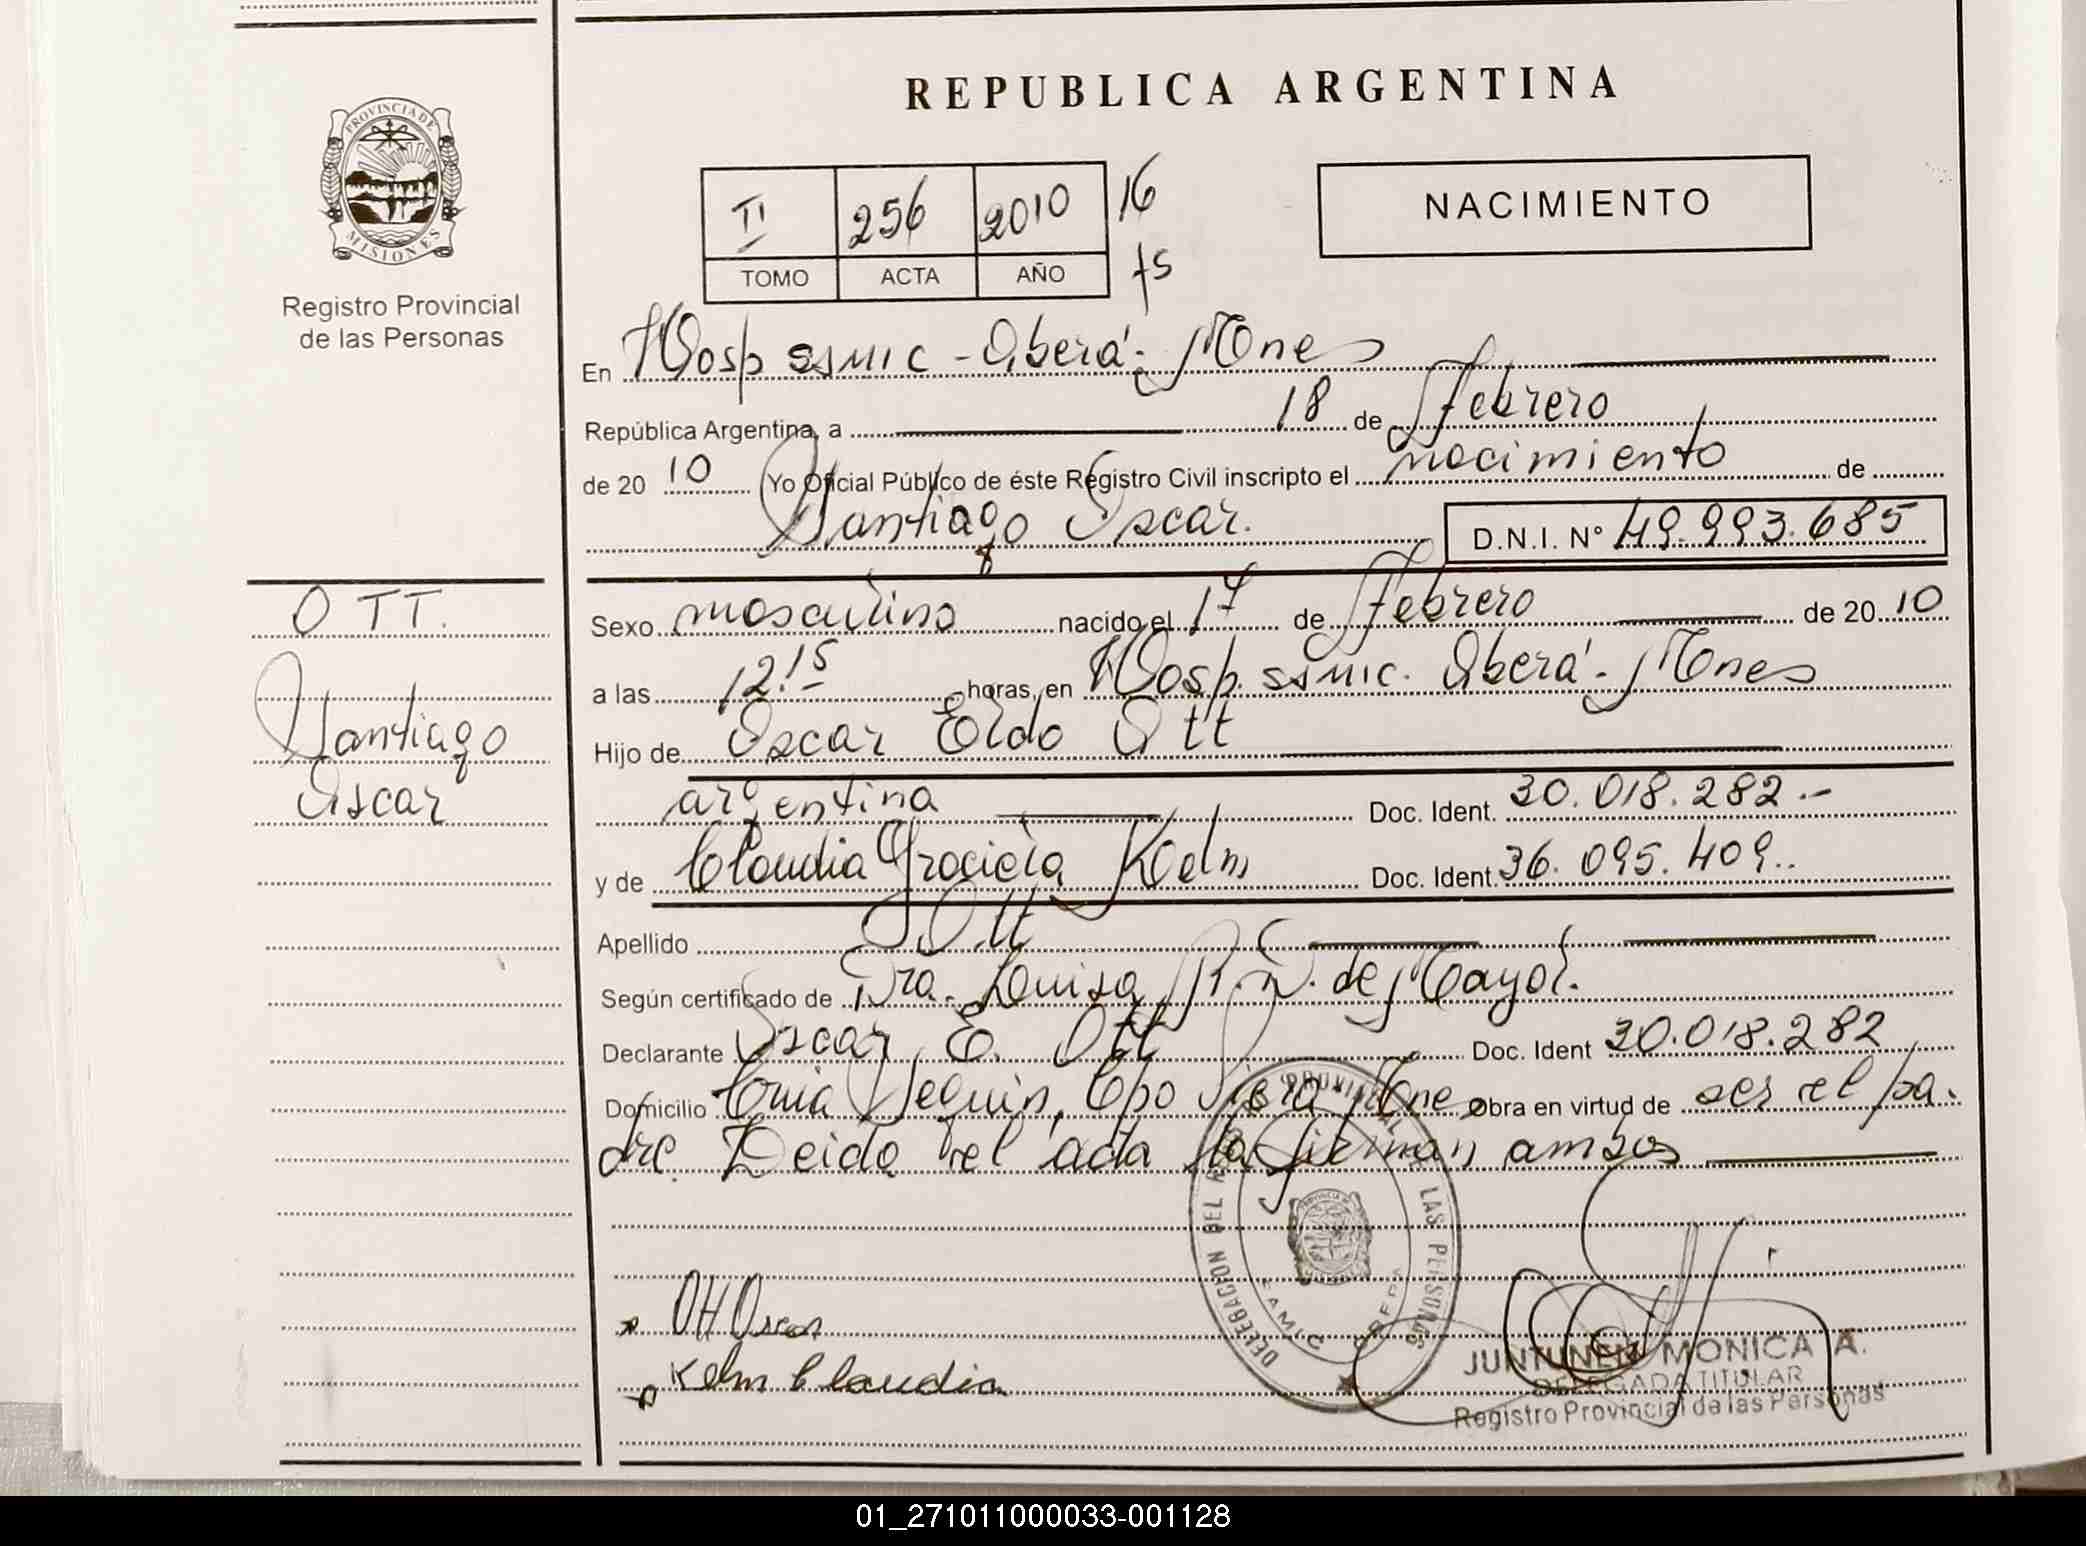 REPUBLICA ARGENTINA
PROVINCIA DE
MISIONES
Registro Provincial
de las Personas
II 256 2010 16
TOMO ACTA AÑO fs
NACIMIENTO
En Hosp SAMIC - Oberá - Mnes
República Argentina, a 18 de Febrero
de 20 10 Yo Oficial Público de éste Registro Civil inscripto el nacimiento de
Santiago Oscar.
D.N.I. N° 49.993.685
OTT.
Santiago
Oscar
Sexo masculino nacido el 17 de Febrero de 20 10
a las 12.15 horas, en Hosp. SAMIC. Oberá - Mnes
Hijo de Oscar Eldo Ott
argentina Doc. Ident. 30.018.282.-
y de Claudia Graciela Kelm Doc. Ident. 36.095.409..
Apellido Ott
Según certificado de Dra. Luisa R. de Mayol.
Declarante Oscar E. Ott Doc. Ident 30.018.282
Domicilio Cnia Seguin, Cpo Viera Mnes Obra en virtud de ser el pa-
dre. Leida el acta la firman ambos
DELEGACION DEL PROVINCIAL DE LAS PERSONAS
Ott Oscar
Kelm Claudia
JUNTUNEN MONICA A.
DELEGADA TITULAR
Registro Provincial de las Personas
01_271011000033-001128